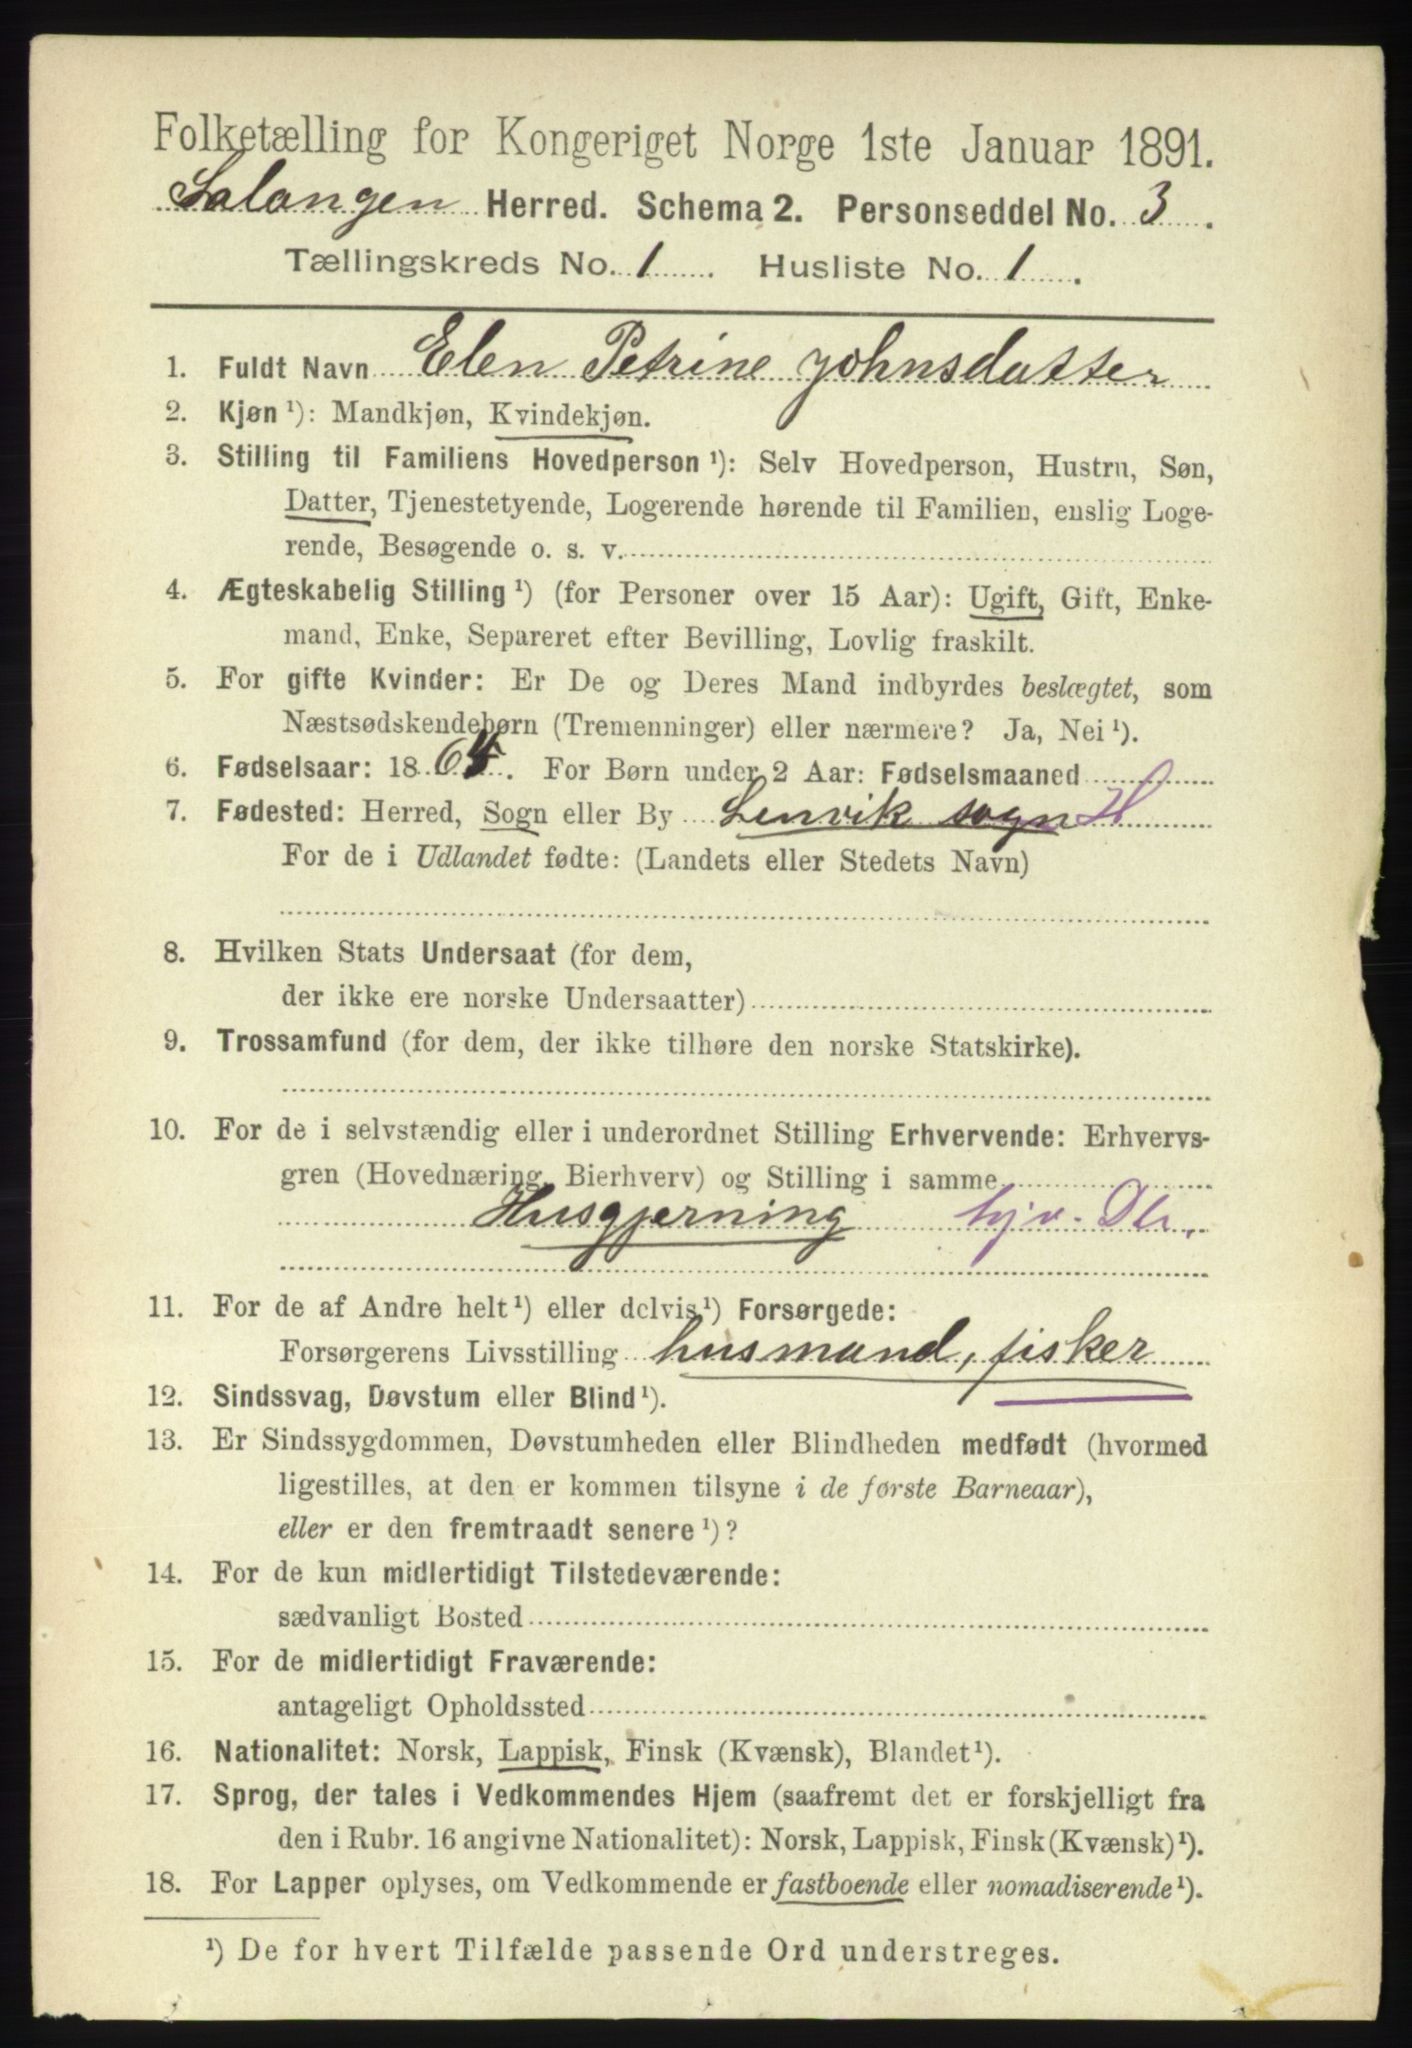 Folketælling for Kongeriget Norge 1ste Januar 1891.
Salangen Herred. Schema 2. Personseddel No. 3.
Tællingskreds No. 1. Husliste No. 1.
1. Fuldt Navn Elen Petrine Johnsdatter
2. Kjøn ¹): Mandkjøn, Kvindekjøn.
3. Stilling til Familiens Hovedperson ¹): Selv Hovedperson, Hustru, Søn,
Datter, Tjenestetyende, Logerende hørende til Familien, enslig Loge-
rende, Besøgende o. s. v.
4. Ægteskabelig Stilling ¹) (for Personer over 15 Aar): Ugift, Gift, Enke-
mand, Enke, Separeret efter Bevilling, Lovlig fraskilt.
5. For gifte Kvinder: Er De og Deres Mand indbyrdes beslægtet, som
Næstsødskendebørn (Tremenninger) eller nærmere? Ja, Nei ¹).
6. Fødselsaar: 1864. For Børn under 2 Aar: Fødselsmaaned
7. Fødested: Herred, Sogn eller By Lenvik sogn H
For de i Udlandet fødte: (Landets eller Stedets Navn)
8. Hvilken Stats Undersaat (for dem,
der ikke ere norske Undersaatter)
9. Trossamfund (for dem, der ikke tilhøre den norske Statskirke).
10. For de i selvstændig eller i underordnet Stilling Erhvervende: Erhvervs-
gren (Hovednæring, Bierhverv) og Stilling i samme
Husgjerning hjv. Dtr.
11. For de af Andre helt ¹) eller delvis ¹) Forsørgede:
Forsørgerens Livsstilling husmand, fisker
12. Sindssvag, Døvstum eller Blind ¹).
13. Er Sindssygdommen, Døvstumheden eller Blindheden medfødt (hvormed
ligestilles, at den er kommen tilsyne i de første Barneaar),
eller er den fremtraadt senere ¹)?
14. For de kun midlertidigt Tilstedeværende:
sædvanligt Bosted
15. For de midlertidigt Fraværende:
antageligt Opholdssted
16. Nationalitet: Norsk, Lappisk, Finsk (Kvænsk), Blandet ¹).
17. Sprog, der tales i Vedkommendes Hjem (saafremt det er forskjelligt fra
den i Rubr. 16 angivne Nationalitet): Norsk, Lappisk, Finsk (Kvænsk) ¹).
18. For Lapper oplyses, om Vedkommende er fastboende eller nomadiserende ¹).
¹) De for hvert Tilfælde passende Ord understreges.